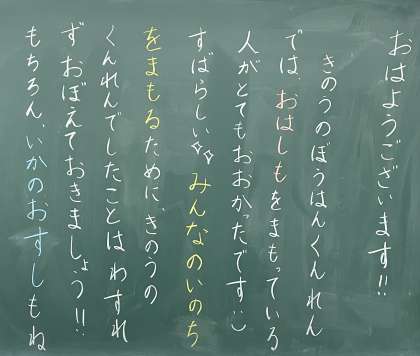 おはようございます!!
きのうのぼうはんくんれん
では、おはしもをまもっている
人がとてもおおかったです:)
すばらしい✨みんなのいのち
をまもるために、きのうの
くんれんでしたことはわすれ
ずおぼえておきましょう!!
もちろん、いかのおすしもね